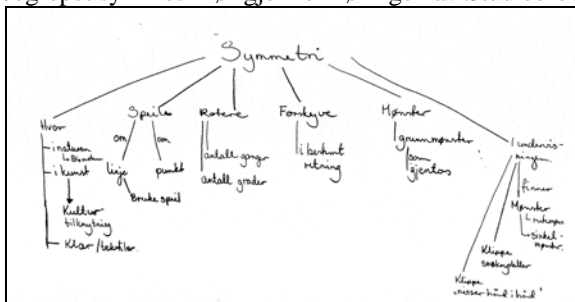 Symmetri
Hvor
i naturen
i kunst
Kultur
tilknytning
Klær/tekstiler
Speile
om
om
linje
punkt
Bruke speil
Rotere
antall ganger
antall grader
Forskyve
i bestemt
retning
Mønster
grunnmønster
som
gjentas
I undervis-
ningen
finner
Mønster
sirkel-
mønster
Klippe
snøkrystaller
Klippe
"nisser hånd i hånd"